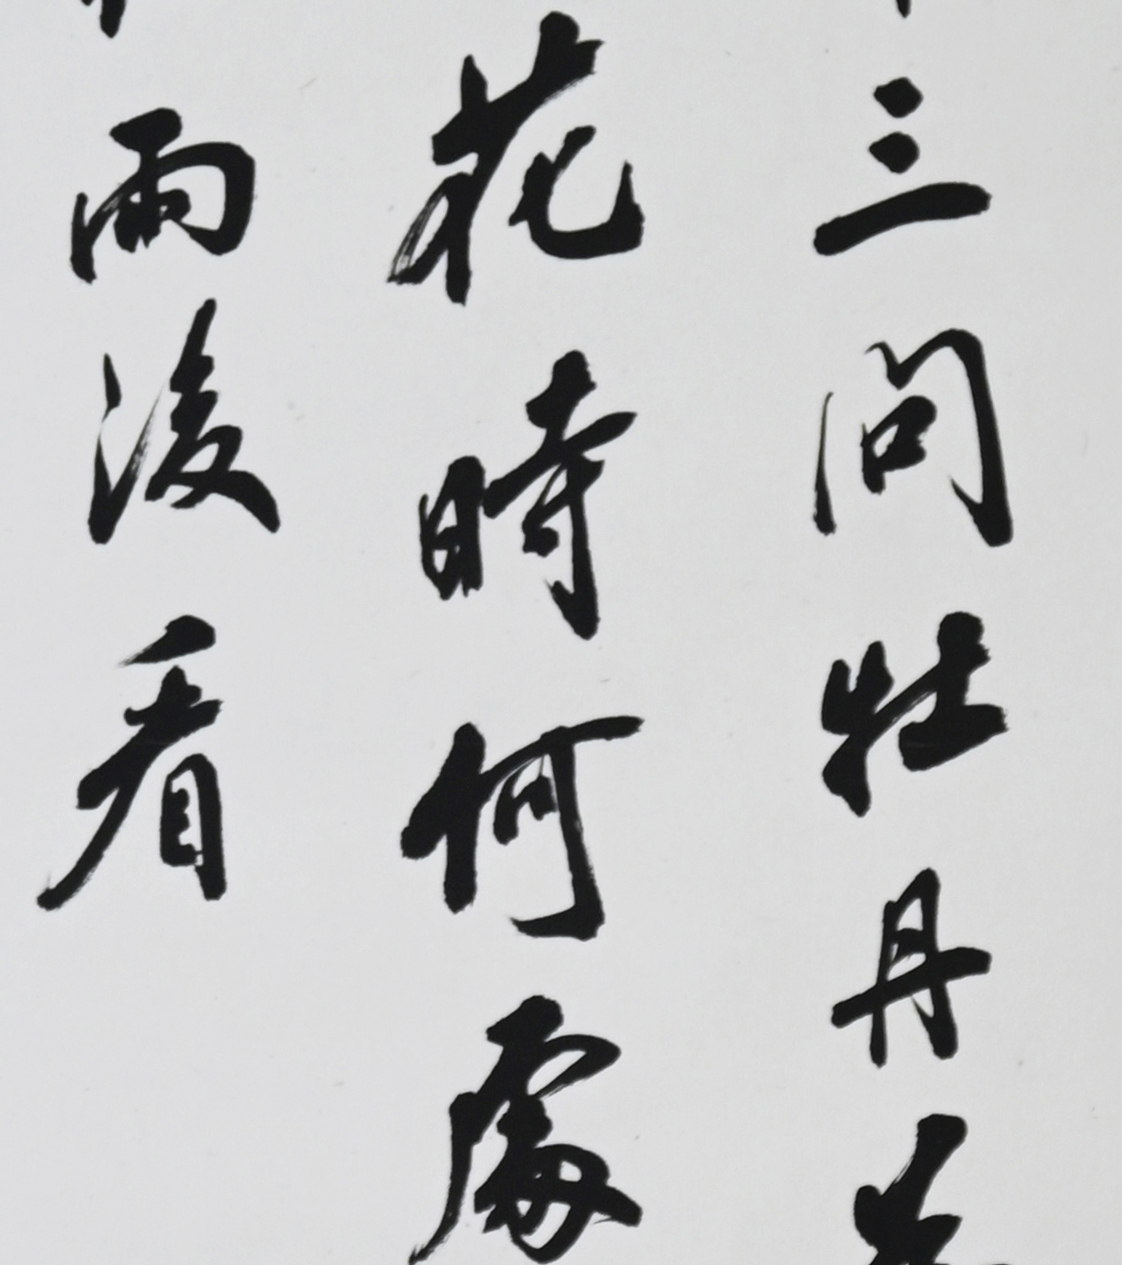 三問牡丹
花時何處
雨後看